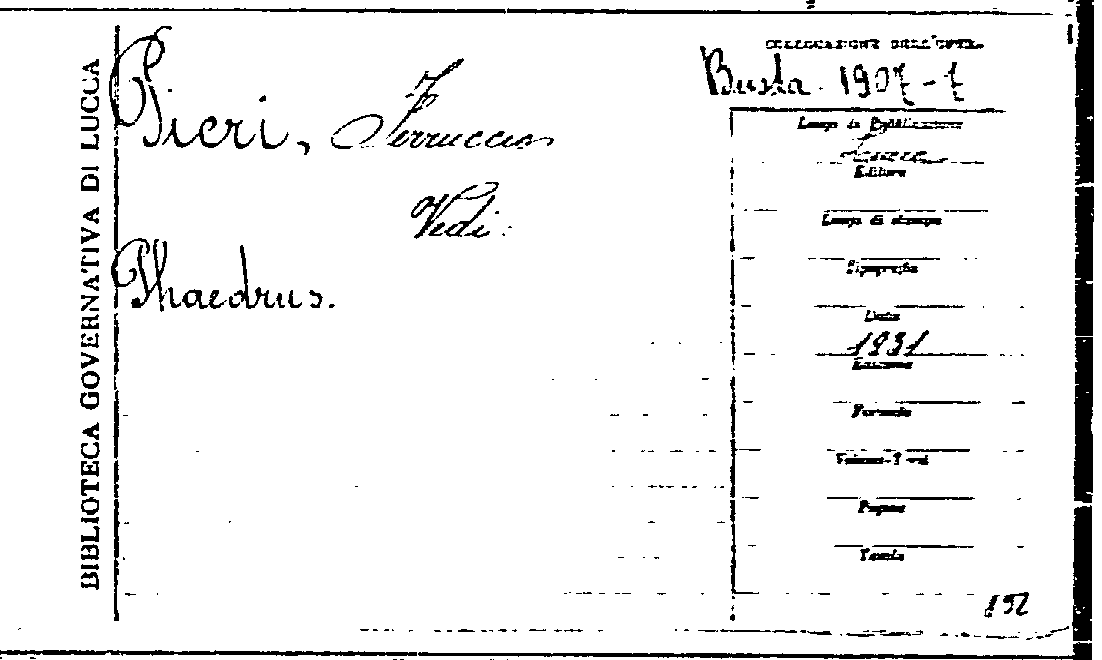 BIBLIOTECA GOVERNATIVA DI LUCCA
Pieri, Ferruccio
Vedi:
Phaedrus.
COLLOCAZIONE DELL'OPERA
Busta. 1907-7
Luogo di Pubblicazione
Lucca
Editore
Luogo di stampa
Tipografia
Data
1931
Edizione
Formato
Pagine
Tavole